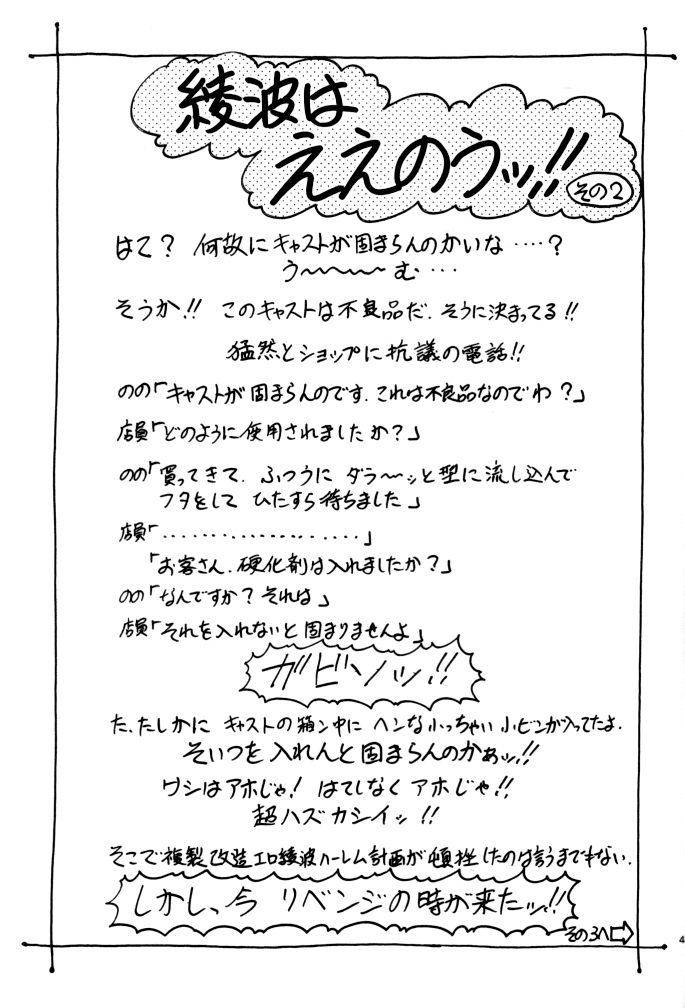 綾波は
ええのうッ!!
その2
はて? 何故にキャストが固まらんのかいな ‥‥?
う〜〜〜む‥‥
そうか!! このキャストは不良品だ. そうに決まってる!!
猛然とショップに抗議の電話!!
のの「キャストが固まらんのです. これは不良品なのでわ?」
店員「どのように使用されましたか?」
のの「買ってきて. ふつうに ダラ〜ッと型に流し込んで
フタをして ひたすら待ちました」
店員「‥‥‥‥‥‥‥‥‥‥」
「お客さん. 硬化剤は入れましたか?」
のの「なんですか? それは」
店員「それを入れないと固まりませんよ」
ガビソッ!!
た、たしかに キャストの箱ン中に ヘンな小っちゃい小ビンが入ってたよ.
そいつを入れんと固まらんのかぁッ!!
ワシはアホじゃ! はてしなく アホじゃ!!
超ハズカシイッ !!
そこで複製改造エロ綾波ハーレム計画が頓挫したのは言うまでもない.
しかしっ今 リベンジの時が来たッ!!
その3へ⇨
4